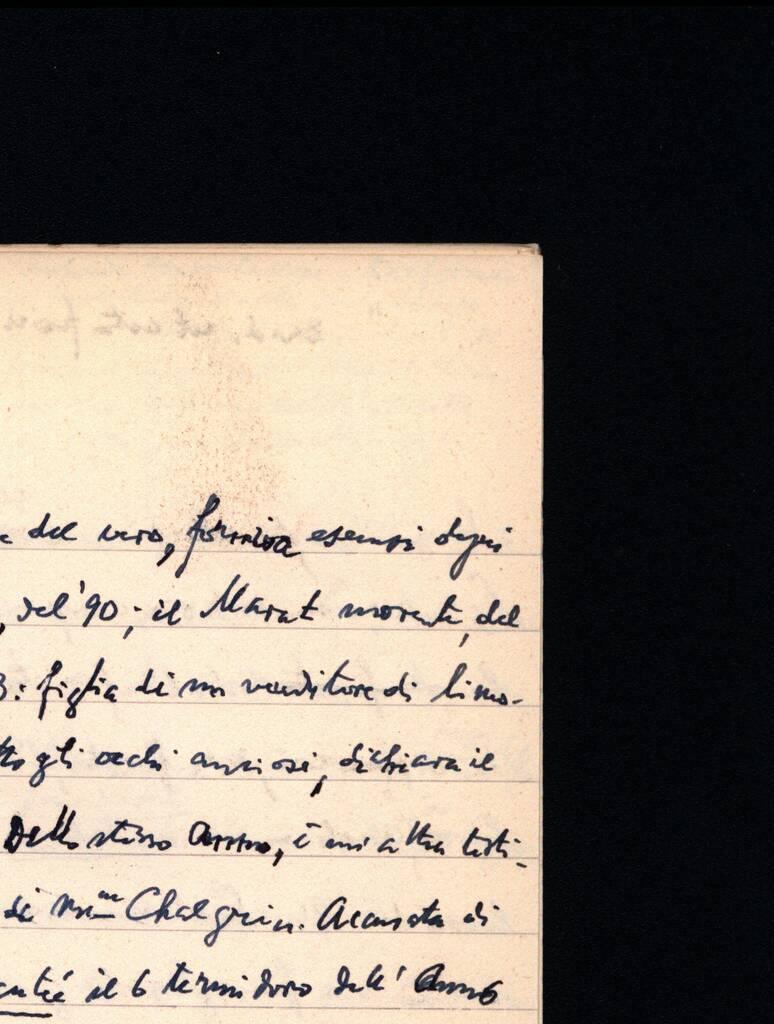 del vero, forniva esempi degni
, del '90; il Marat morente, del
3: figlia di un venditore di limo-
tto gli occhi ansiosi, dichiara il
Dello stesso anno, è un'altra testi-
di Mme Chalgrin. Accusata di
il 6 termidoro dell'Anno